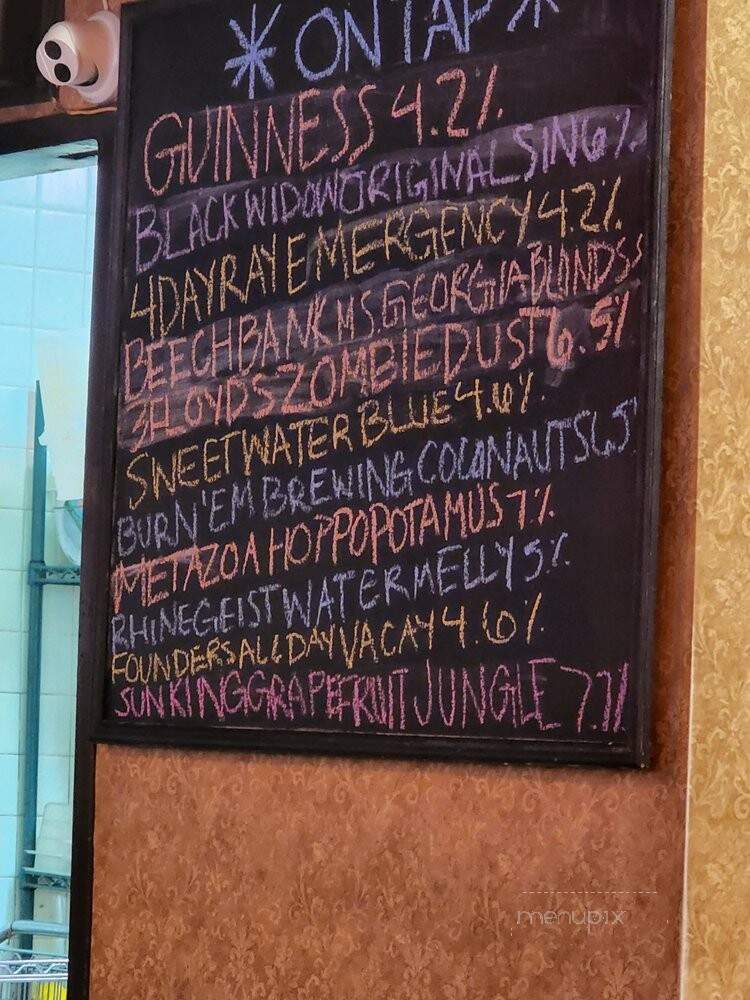 * ON TAP *
GUINNESS 4.2%
BLACK WIDOW ORIGINAL SIN 6%
4 DAY RAY EMERGENCY 4.2%
BEECH BANK MS. GEORGIA BLONDS 5
3 FLOYDS ZOMBIE DUST 6.5%
SWEETWATER BLUE 4.6%
BURN 'EM BREWING COCONAUTS 6.5
METAZOA HOPPOPOTAMUS 7%
RHINEGEIST WATERMELLY 5%
FOUNDERS ALL DAY VACAY 4.6%
SUN KING GRAPEFRUIT JUNGLE 7.7%
menupix